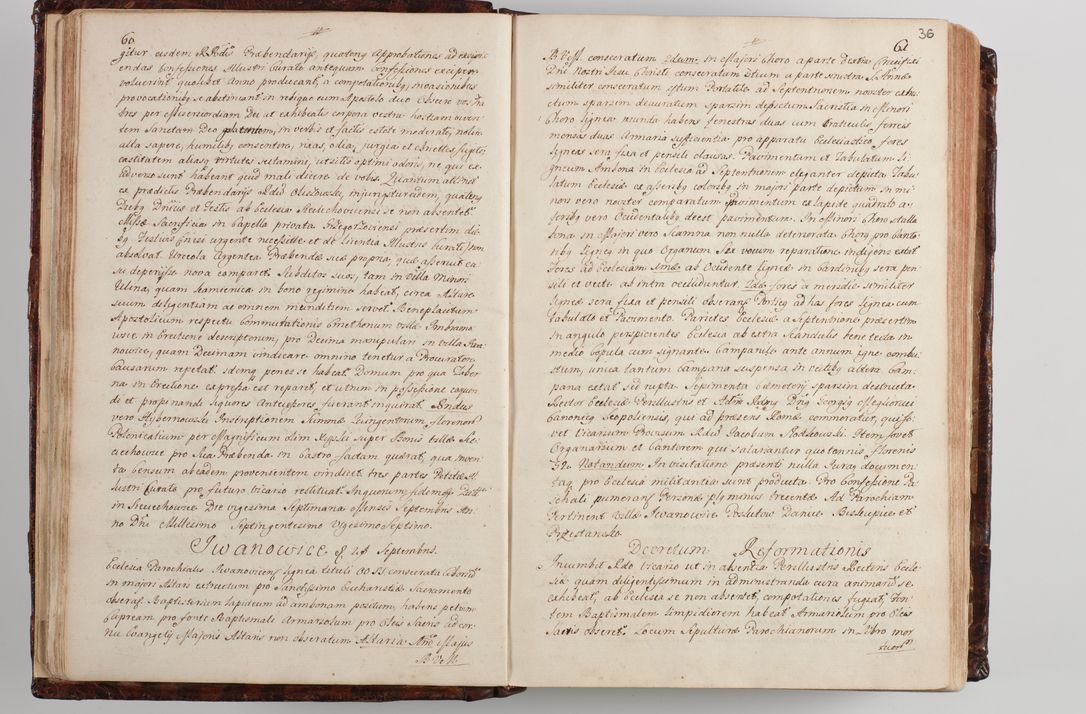 60
gitur eisdem RRdis Præbendarijs, quatenq Approbationes ad excipi-
endas Confessiones Illustri Curato antequam Confessiones excipere
voluerint quolibet Anno producant, a compotationibq, invasionibq
provocationibq abstineant in reliquo cum Apostolo duo Obsecro vos fra-
tres per Misericordiam Dei ut exhibeatis corpora vestra hostiam viven-
tem Sanctam Deo placentem, in verbis et factis estote moderati, nolite
alta sapere, humilibq consentire,
castitatem aliasq virtutes
adverso sunt habeant quid mali dicere de vobis. Quantum attinet
ex prædictis Præbendarijs Rdo Oliszowski, injungitur eidem, quateng
Diebq Dnicis et Festis ab Ecclesia Sciechoviensi se non absentet
Missæ Sacrificia in Capella privata præsertim di-
urgente necessitate et de licentia Illustris Curati, non
absolvat. Urceola Argentea Præbendæ suæ propria, quæ asseruit ca-
su deperijsse nova comparet. Subditos suos, tam in Villa Minori
quam Kamienica in bono regimine habeat, circa Altare
suum diligentiam ac omnem munditiem servet. Beneplacitum
Apostolicum respectu Commutationis Cmethonum Villæ Imbramo-
wice in Erectione descriptorum, pro Decima manipulari in Villa Iwa-
nowice, quam Decimam vindicare omnino tenetur a Procuratore
Causarum repetat, idemq penes se habeat. Domum pro qua Taber-
na in Erectione expressa est reparet, et utrum in possessione capien-
di et propinandi liquores Antecessores fuerant inquirat. Rndus
vero Hybernowski Inscriptionem Summæ Quingentorum florenor.
Polonicalium per Magnificum olim super Bonis Villæ Scie-
ciechowice pro sua Præbenda in Castro factam quærat, qua inven-
ta Censum abeadem provenientem vindicet, tres partes
lustri Curato pro futuro Vicario restituat. Inquorum fidem
in Sciecechowice Die vigesima Septima Mensis Septembris An-
no Dni Millesimo Septingentesimo Vigesimo Septimo.
Iwanowice d. 28 Septembris.
Ecclesia Parochialis Iwanowicen lignea tituli consecrata
in majori Altari extructum pro Sandissimo Eucharistiæ Sacramento
obserat. Baptisterium lapideum ad ambonam positum, habens
cupream pro fonte Baptismali Armariolum pro Oleis Sacris ad cor-
nu Evangelij Majoris Altaris non obseratum. Altaria Maius
B.V.M.
36
61
B.V.M. consecratum 2dum. in Majori Choro a parte dextra Crucifixi
Dni Nostri Jesu Christi consecratum 3tium a parte sinistra S. Annæ
similiter consecratum 4tum Portatile ad Septentrionem noviter extru-
ctum sparsim deauratum sparsim depictum. Sacristia in Minori
Choro lignea munda habens fenestras duas cum Craticulis ferreis
mensas duas Armaria sufficientia pro apparatu Ecclesiastico, fores
ligneas sera fixa et pensili clausas. Pavimentum et Tabulatum Li-
gneum. Ambona in Ecclesia ad Septentrionem eleganter depicta Tabu-
latum Ecclesiæ ex asseribq coloribq in majori parte depictum in mi-
nori vero noviter comparatum pavimentum ex lapide quadrato a-
seribq vero Occidentalibq deest pavimentum. In Minori Choro stalla
bona in Majori vero Scamna non nulla deteriorata. Chorq pro Canto-
ribq ligneq in quo Organum Sex vocum reparatione indigens extat.
Fores ad Ecclesiam 1mæ ab Occidente ligneæ in cardinibq sera pen-
sili et vecte ab intra occluduntur. 2dæ fores a meridie similiter
ligneæ sera fixa et pensili obserant. Porticq ad has fores lignea cum
Tabulato et Pavimento. Parietes Ecclesiæ a Septentrione præsertim
in angulo perspicientes Ecclesia ab extra Scandulis bene tecta in
medio Copula cum signante. Campanile ante annum igne combu-
stum, unica tantum Campana suspensa in altera Cam-
pana extat sed rupta. Sepimenta Cæmeterij sparsim destructa.
Rector Ecclesiæ Perillustris et Adm Rdsq Dnq Georgiq
Canonicq Scopoliensis, qui ad præsens Romæ commoratur, quiesc-
vet Vicarium Provisum Rdum Jacobum Rodkowski. Item fovet
Organarium et Cantorem qui salarantur quotannis florenis
52. Notandum. In visitatione præsenti nulla Iura, documen-
taq pro Ecclesia militantia sunt producta. Pro Confessione Pa-
schali numerant Personæ plq minus trecentæ. Ad Parochiam
Pertinent Villæ Iwanowice Poskutow Damice Biskupice et
Przestansko.
Decretum Reformationis
Incumbit Rdo Vicario ut in absentia Perillustris Rectoris Eccle-
siæ quam diligentissimum in administranda cura animarum se
exhibeat, ab Ecclesia se non absentet, compotationes fugiat, Fon-
tem Baptismalem limpidiorem habeat Armariolum pro Oleis
Sacris obseret. Locum Sepulturæ Parochianorum in Libro mor
tuor